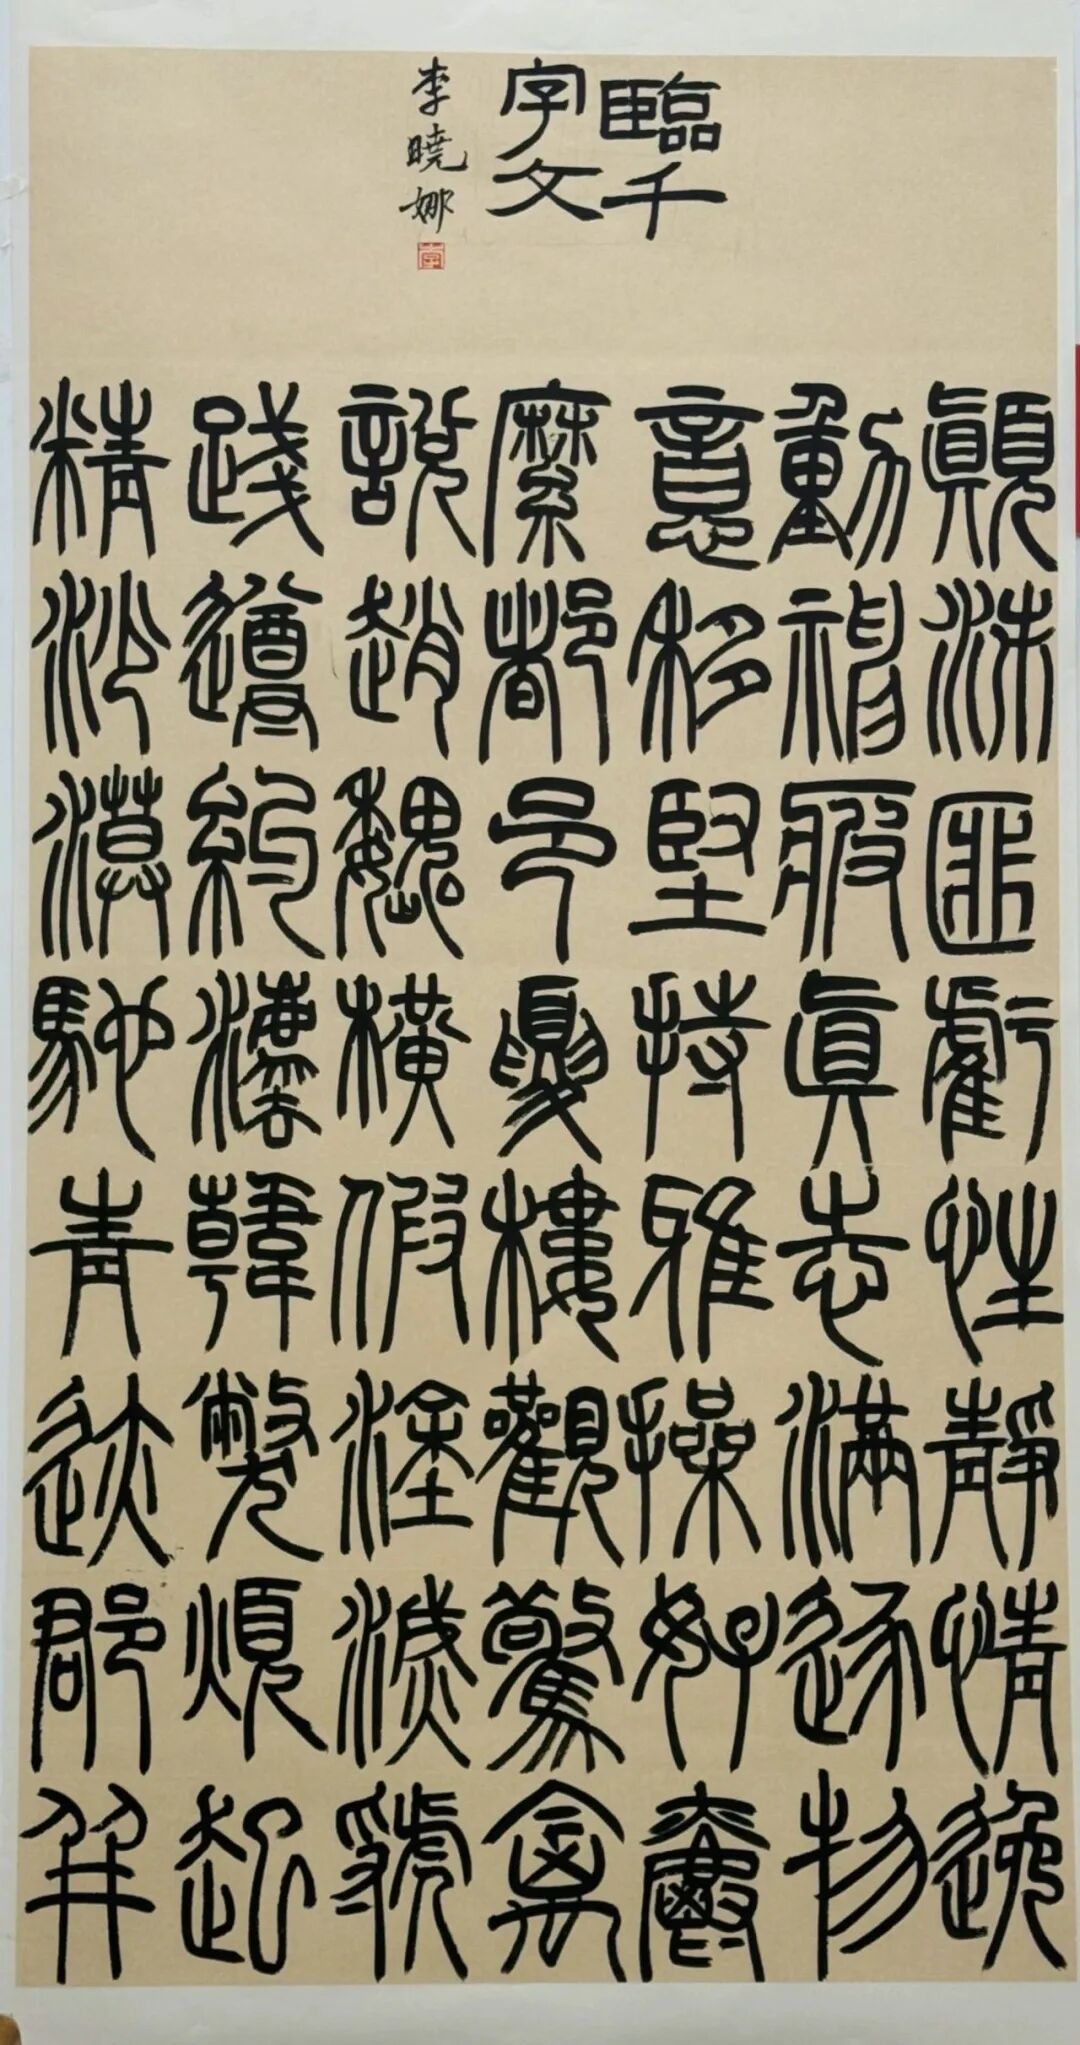 臨千
字文
李曉娜
李
顛沛匪虧性靜情逸
動神疲眞志滿逐物
意移堅持雅操好爵
縻都邑夏樓觀驚禽
說趙魏橫假塗滅虢
踐遵約灋韓弊煩起
精沙漠馳青迹郡并